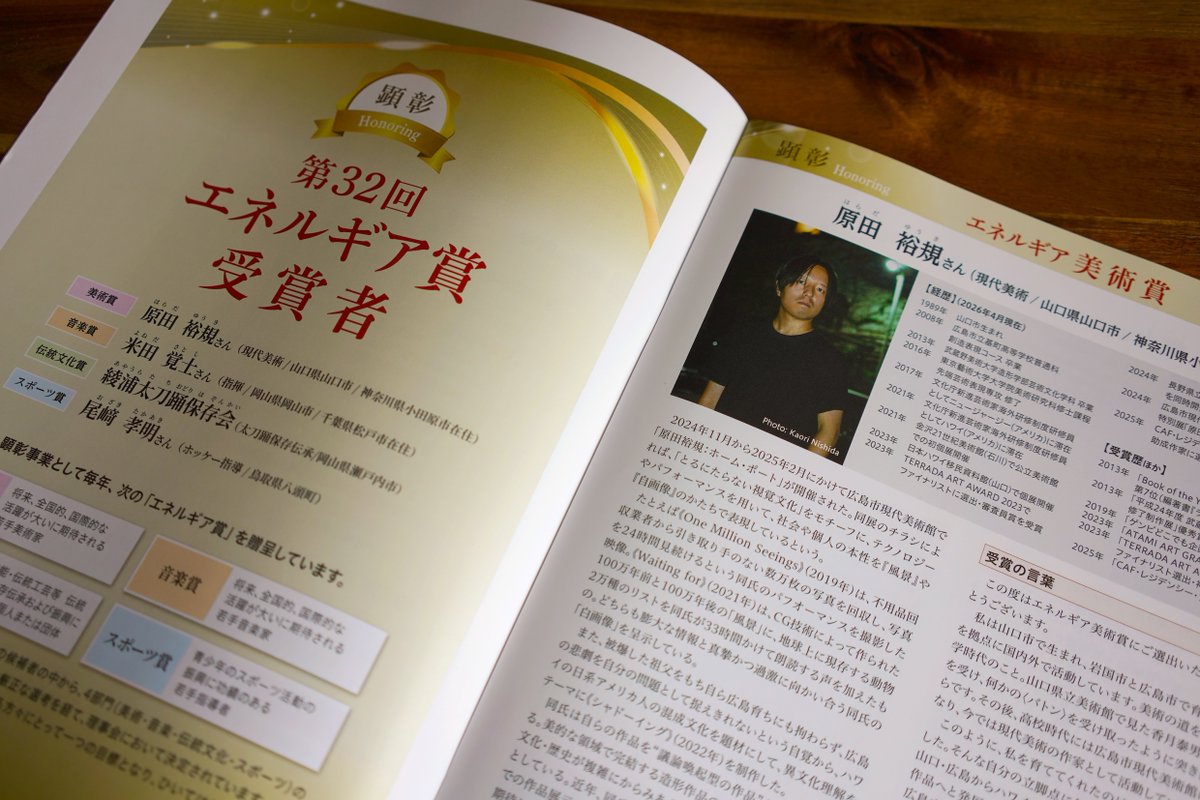 顕彰
Honoring
第32回
エネルギア賞
受賞者
美術賞
原田 裕規さん(現代美術/山口県山口市/神奈川県小田原市在住)
はらだ ゆうき
音楽賞
米田 覚士さん(指揮/岡山県岡山市/千葉県松戸市在住)
よねだ さとし
伝統文化賞
綾浦太刀踊保存会(太刀踊保存伝承/岡山県瀬戸内市)
スポーツ賞
尾﨑 孝明さん(ホッケー指導/鳥取県八頭町)
おざき たかあき
顕彰事業として毎年、次の「エネルギア賞」を贈呈しています。
将来、全国的、国際的な
活躍が大いに期待される
若手美術家
音楽賞
将来、全国的、国際的な
活躍が大いに期待される
若手音楽家
能・伝統工芸等 伝統
存伝承および振興に
個人または団体
スポーツ賞
青少年のスポーツ活動の
振興に功績のある
若手指導者
候補者の中から、4部門(美術・音楽・伝統文化・スポーツ)の
厳正な選考を経て、理事会において決定されています。
方々にとって一つの目標となり、ひいては
顕彰 Honoring
エネルギア美術賞
はらだ ゆうき
原田 裕規さん(現代美術/山口県山口市/神奈川県小
Photo: Kaori Nishida
【経歴】(2026年4月現在)
1989年 山口市生まれ
2008年 広島市立基町高等学校普通科
創造表現コース 卒業
2013年 武蔵野美術大学造形学部芸術文化学科 卒業
2016年 東京藝術大学大学院美術研究科修士課程
先端芸術表現専攻 修了
2017年 文化庁新進芸術家海外研修制度研修員
としてニュージャージー(アメリカ)に滞在
2021年 文化庁新進芸術家海外研修制度研修員
としてハワイ(アメリカ)に滞在
2021年 金沢21世紀美術館(石川)で公立美術館
での初個展開催
2023年 日本ハワイ移民資料館(山口)で個展開催
2023年 TERRADA ART AWARD 2023で
ファイナリストに選出・審査員賞を受賞
2024年 長野県立
を同時
2024年 広島市現
2025年 特別展「原田
2025年 CAF・レジ
助成作家に
【受賞歴ほか】
2013年 「Book of the
第7位(編著書
2013年 「平成24年度 武
修了制作展」優秀
2019年 「ゲンビどこでも
2023年 「ATAMI ART GR
2023年 「TERRADA ART
ファイナリスト選出・
2025年 「CAF・レジデンシー
2024年11月から2025年2月にかけて広島市現代美術館で
「原田裕規:ホーム・ポート」が開催された。同展のチラシによ
れば、「とるにたらない視覚文化」をモチーフに、テクノロジー
やパフォーマンスを用いて、社会や個人の本性を『風景』や
『自画像』のかたちで表現しているという。
たとえば《One Million Seeings》(2019年)は、不用品回
収業者から引き取り手のない数万枚の写真を回収し、写真
を24時間見続けるという同氏のパフォーマンスを撮影した
映像。《Waiting for》(2021年)は、CG技術によって作られた
100万年前と100万年後の「風景」に、地球上に現存する動物
2万種のリストを同氏が33時間かけて朗読する声を加えたも
の。どちらも膨大な情報と真摯かつ過激に向かい合う同氏の
「自画像」を呈示している。
また、被爆した祖父をもち自ら広島育ちにも拘わらず、広島
の悲劇を自分の問題として捉えきれないという自覚から、ハワ
イの日系アメリカ人の混成文化を題材にして、異文化理解を
テーマに《シャドーイング》(2022年)を制作した。
同氏は自らの作品を“議論喚起型の作品”
る。美的な領域で完結する造形作品の
文化・歴史が複雑にからみあ
としている。近年、同
での作品展
受賞の言葉
この度はエネルギア美術賞にご選出い
とうございます。
私は山口市で生まれ、岩国市と広島市で育
を拠点に国内外で活動しています。美術の道
学時代のこと。山口県立美術館で見た香月泰
を受け、何かの〈バトン〉を受け取ったように突き
らです。その後、高校時代には広島市現代美術
なり、今では現代美術の作家として活動してい
このように、私を育ててくれたのは
した。そんな自分の立脚点に
山口・広島からハワ
作品へと発展